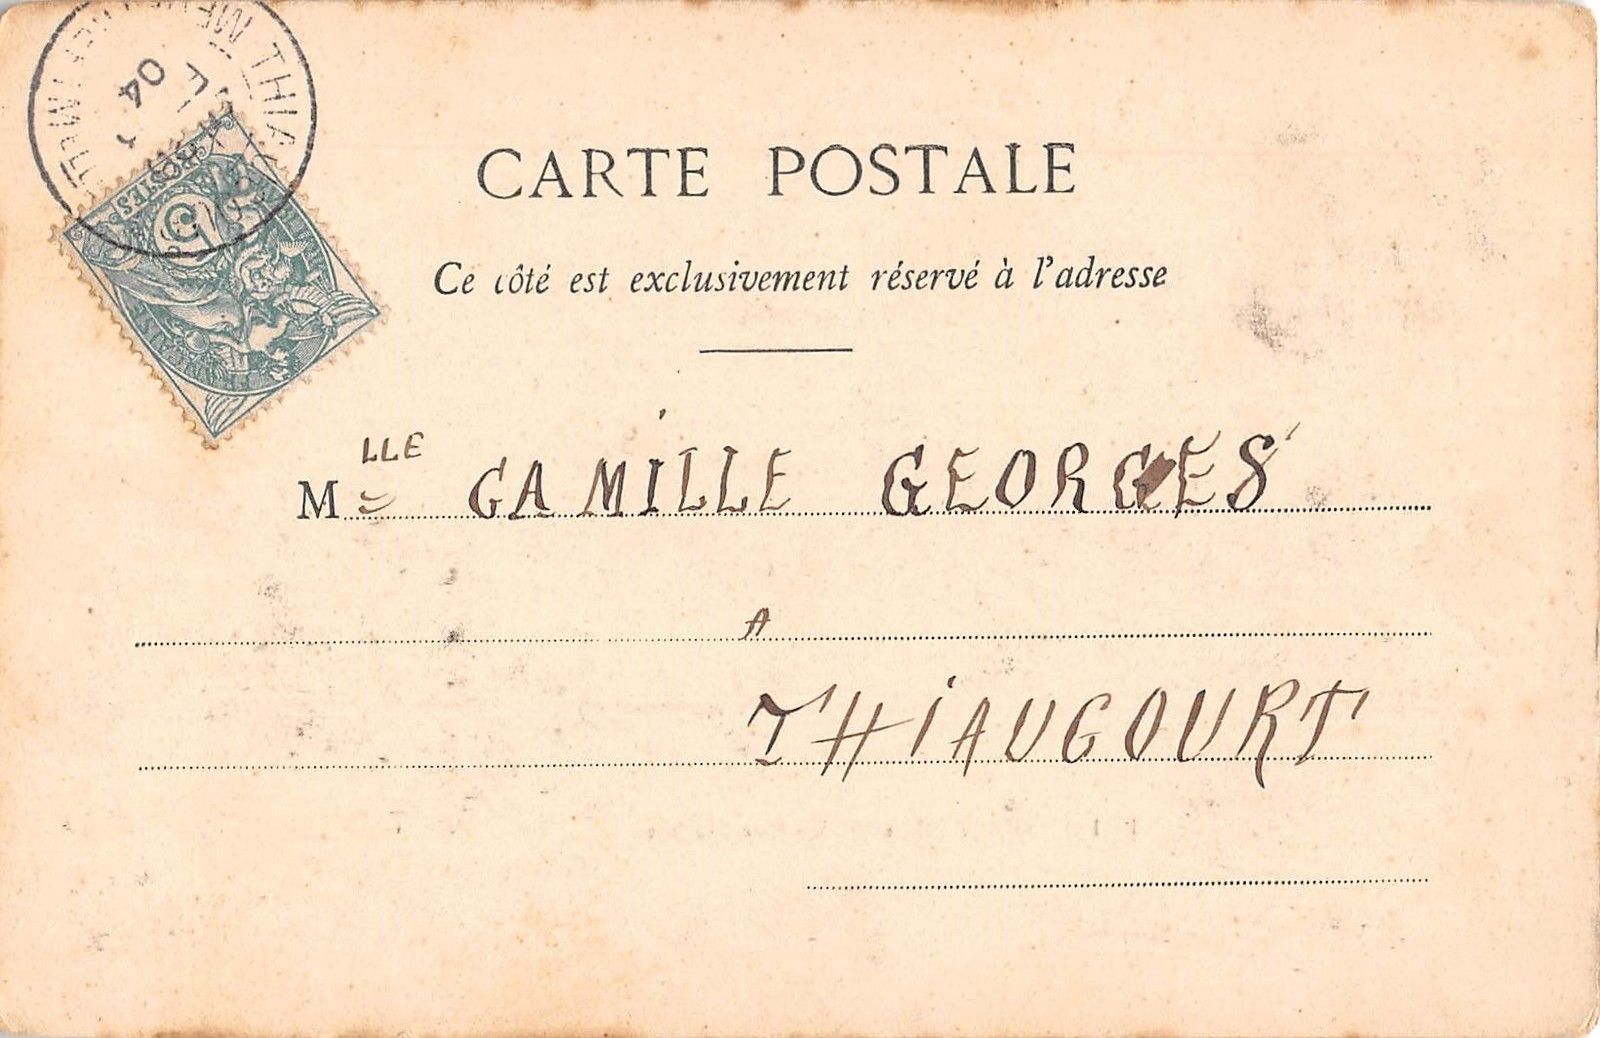 THIA
04
POSTES
5
CARTE POSTALE
Ce côté est exclusivement réservé à l'adresse
MLLE CAMILLE GEORGES
A
THIAUCOURT